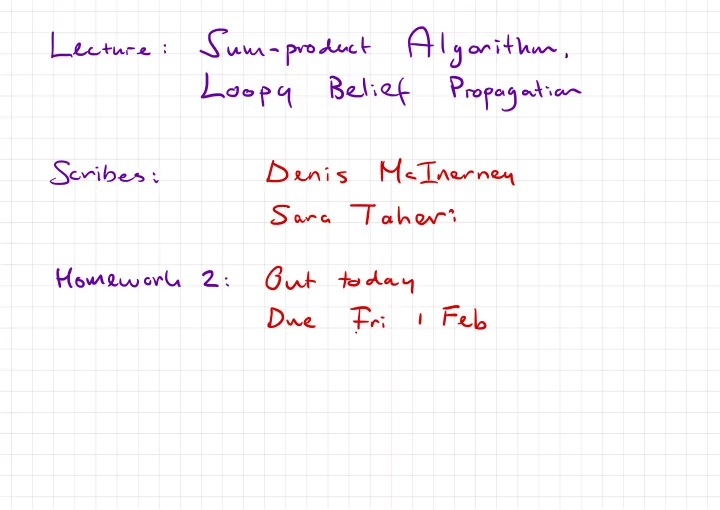 Lecture: Sum-product Algorithm,
Loopy Belief Propagation
Scribes: Denis McInerney
Sara Taheri
Homework 2: Out today
Due Fri 1 Feb